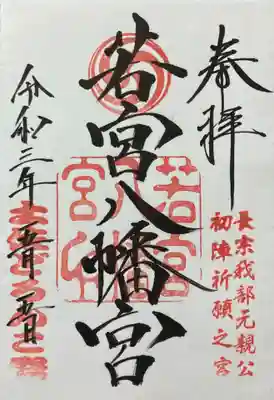 奉拝
長宗我部元親公
初陣祈願之宮
若宮八幡宮
若宮
八
宮
令和三年
五月
五日